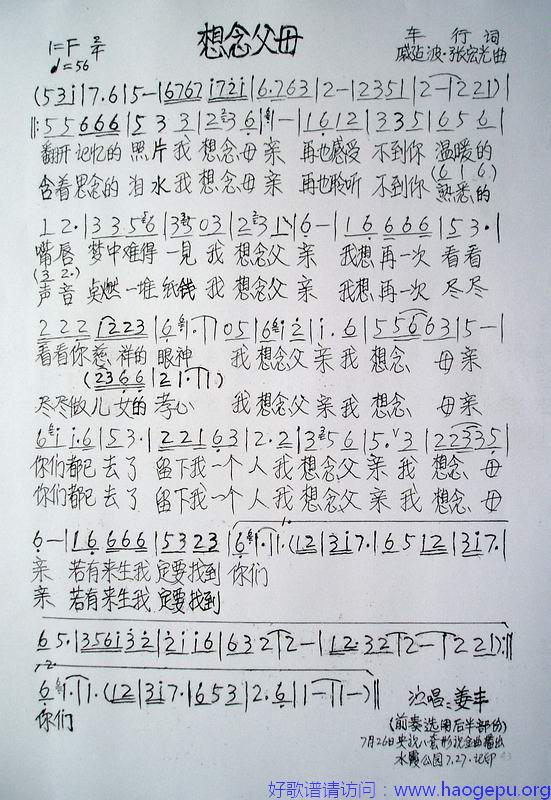 想念父母
1=F 2/4
♩=56
车 行 词
戚建波·张宏光曲
(5 3 i | 7.6 | 5 - | 6767 i72i | 6.763 | 2 - | 2351 | 2 - | 2 2 1) |
‖: 5 5 666 | 5 3 3 | 2 3 6 | 1 - | 1612 | 3 3 5 | 6 5 6 |
翻开记忆的 照片我 想念母亲 再也感受 不到你 温暖的
含着思念的 泪水我 想念母亲 再也聆听 不到你 熟悉的
(6 1 6)
1 2. | 3 3 5 6 | 3 5 0 3 | 2 3 1 | 6 - | 1 6 6 6 6 | 5 3. |
嘴唇 梦中难得 一见 我 想念父 亲 我想再一次 看看
(3 2.)
声音 点燃一堆 纸钱 我 想念父 亲 我想再一次 尽尽
2 2 2 1223 | 6 1. | 1 0 5 | 6 i 2 | i. 6 | 5 5 6 6 3 | 5 - |
看看你慈祥的 眼神 我 想念父 亲 我 想念 母亲
(2366 | 2 1. | 1)
尽尽做儿女的 孝心 我 想念父 亲 我 想念 母亲
6 i i.6 | 5 3. | 2 2 1 6 3 | 2.2 | 3 5 6 | 5. 3 | 2 2 3 3 5 |
你们都已 去了 留下我一个 人我 想念父 亲 我 想念 母
你们都已 去了 留下我一个 人我 想念父 亲 我 想念 母
6 - | 1 6 6 6 6 | 5 3 2 3 | 6 1. | 1. (12 | 3 i 7. | 6 5 12 | 3 i 7. |
亲 若有来生我 定要找到 你们
亲 若有来生我 定要找到
6 5. | 356i 32 | 2 i i 6 | 6 3 2 | 2 - | 12.3 2 | 2 - | 2 2 1) :‖
6 1. | 1. (12 | 3 i 7. | 6 5 3 | 2. 6 | 1 - | 1 -) ‖
你们
演唱:姜丰
(前奏选用后半部份)
水霞公园7.27.记印
好歌谱请访问：www.haogepu.org